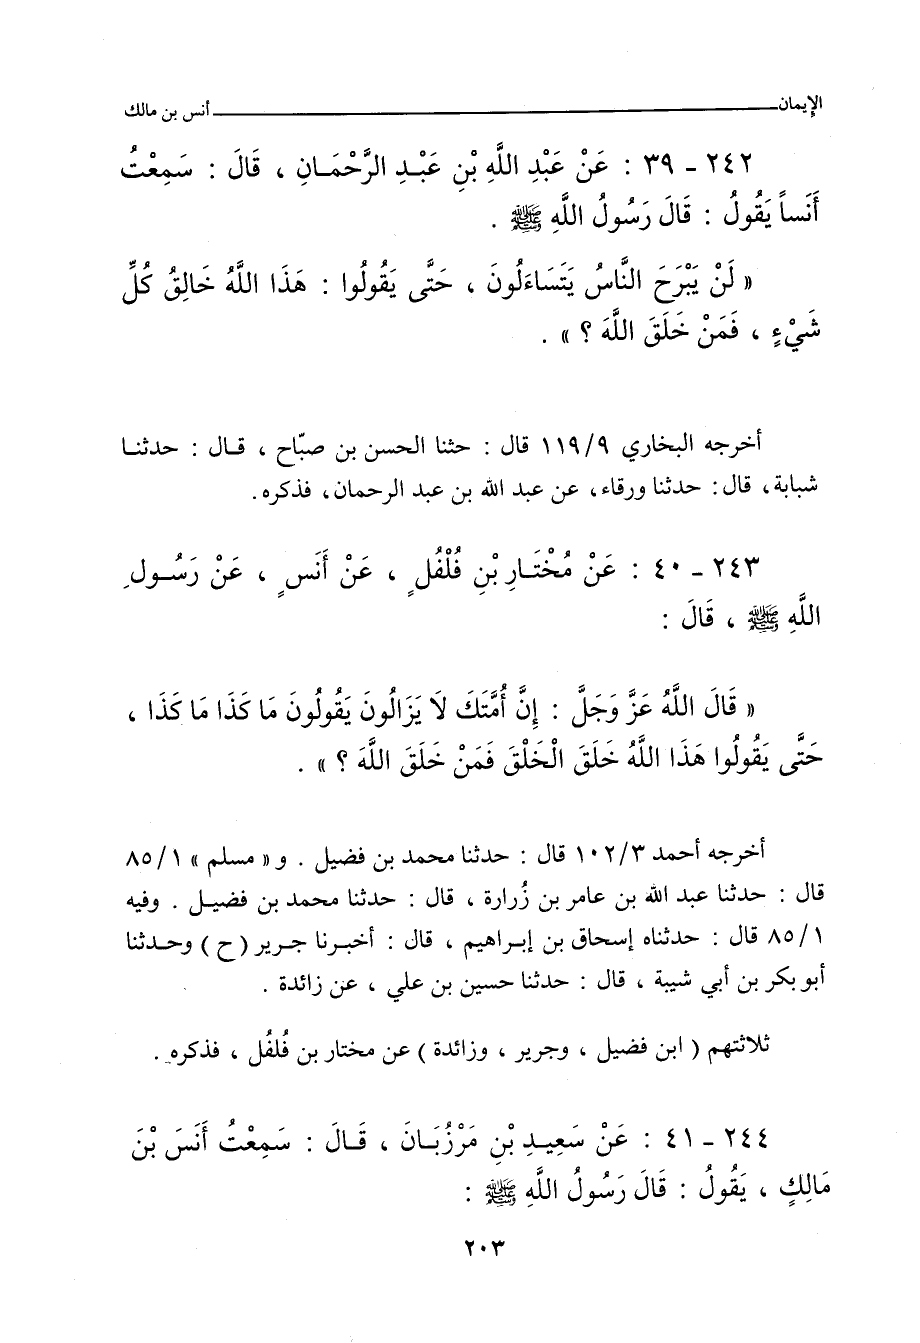 الإيمان ــــــــــ أنس بن مالك
٢٤٢ ـ ٣٩ : عَنْ عَبْدِ اللَّهِ بْنِ عَبْدِ الرَّحْمَانِ ، قَالَ : سَمِعْتُ
أَنَساً يَقُولُ : قَالَ رَسُولُ اللَّهِ ﷺ .
« لَنْ يَبْرَحَ النَّاسُ يَتَسَاءَلُونَ ، حَتَّى يَقُولُوا : هَذَا اللَّهُ خَالِقُ كُلِّ
شَيْءٍ ، فَمَنْ خَلَقَ اللَّهَ ؟ » .
أخرجه البخاري ١١٩/٩ قال : حثنا الحسن بن صبّاح ، قال : حدثنا
شبابة ، قال : حدثنا ورقاء ، عن عبد الله بن عبد الرحمان ، فذكره .
٢٤٣ ـ ٤٠ : عَنْ مُخْتَارِ بْنِ فُلْفُلٍ ، عَنْ أَنَسٍ ، عَنْ رَسُولِ
اللَّهِ ﷺ ، قَالَ :
« قَالَ اللَّهُ عَزَّ وَجَلَّ : إِنَّ أُمَّتَكَ لَا يَزَالُونَ يَقُولُونَ مَا كَذَا مَا كَذَا ،
حَتَّى يَقُولُوا هَذَا اللَّهُ خَلَقَ الْخَلْقَ فَمَنْ خَلَقَ اللَّهَ ؟ » .
أخرجه أحمد ١٠٢/٣ قال : حدثنا محمد بن فضيل . و « مسلم » ٨٥/١
قال : حدثنا عبد الله بن عامر بن زُرارة ، قال : حدثنا محمد بن فضيل . وفيه
٨٥/١ قال : حدثناه إسحاق بن إبراهيم ، قال : أخبرنا جرير ( ح ) وحدثنا
أبو بكر بن أبي شيبة ، قال : حدثنا حسين بن علي ، عن زائدة .
ثلاثتهم ( ابن فضيل ، وجرير ، وزائدة ) عن مختار بن فُلفُل ، فذكره .
٢٤٤ ـ ٤١ : عَنْ سَعِيدِ بْنِ مَرْزُبَانَ ، قَالَ : سَمِعْتُ أَنَسَ بْنَ
مَالِكٍ ، يَقُولُ : قَالَ رَسُولُ اللَّهِ ﷺ :
٢٠٣